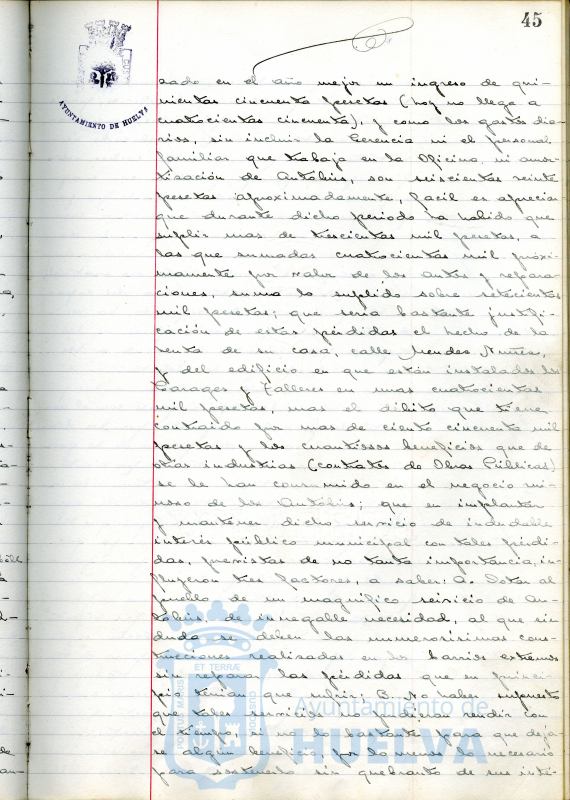 45
AYUNTAMIENTO DE HUELVA
sado en el año mejor un ingreso de qui-
nientas cincuenta pesetas (hoy no llega a
cuatrocientas cincuenta), y como los gastos dia-
rios, sin incluir la Gerencia ni el personal
familiar que trabaja en la Oficina, ni amor-
tización de Autobus, son seiscientas veinte
pesetas aproximadamente, facil es apreciar
que durante dicho periodo ha habido que
suplir mas de trescientas mil pesetas, a
las que sumadas cuatrocientas mil próxi-
mamente por valor de los autos y repara-
ciones, suma lo suplido sobre setecientas
mil pesetas; que seria bastante justifi-
cación de estas pérdidas el hecho de la
venta de su casa, calle Mendez Nuñez,
y del edificio en que están instalados los
Garages y Talleres en unas cuatrocientas
mil pesetas, mas el débito que tiene
contraido por mas de ciento cincuenta mil
pesetas y los cuantiosos beneficios que de
otras industrias (contratas de Obras Públicas)
se le han consumido en el negocio rui-
noso de los Autobús; que en implantar
y mantener dicho servicio de indudable
interés público municipal con tales pérdi-
das, previstas de no tanta importancia, in-
fluyeron tres factores, a saber: A. Dotar al
pueblo de un magnífico servicio de Au-
tobus, de innegable necesidad, al que sin
duda se deben las numerosisimas cons-
trucciones realizadas en los barrios extremos
sin reparar las pérdidas que en princi-
pio tenian que sufrir; B. No haber supuesto
que tales servicios no pudieran rendir con
el tiempo, si no lo bastante para que deja-
se algún beneficio, por lo menos lo necesario
para sostenerlo sin quebranto de sus inte-
PORTUS MARIS ET TERRÆ CUSTODIO
Ayuntamiento de
HUELVA